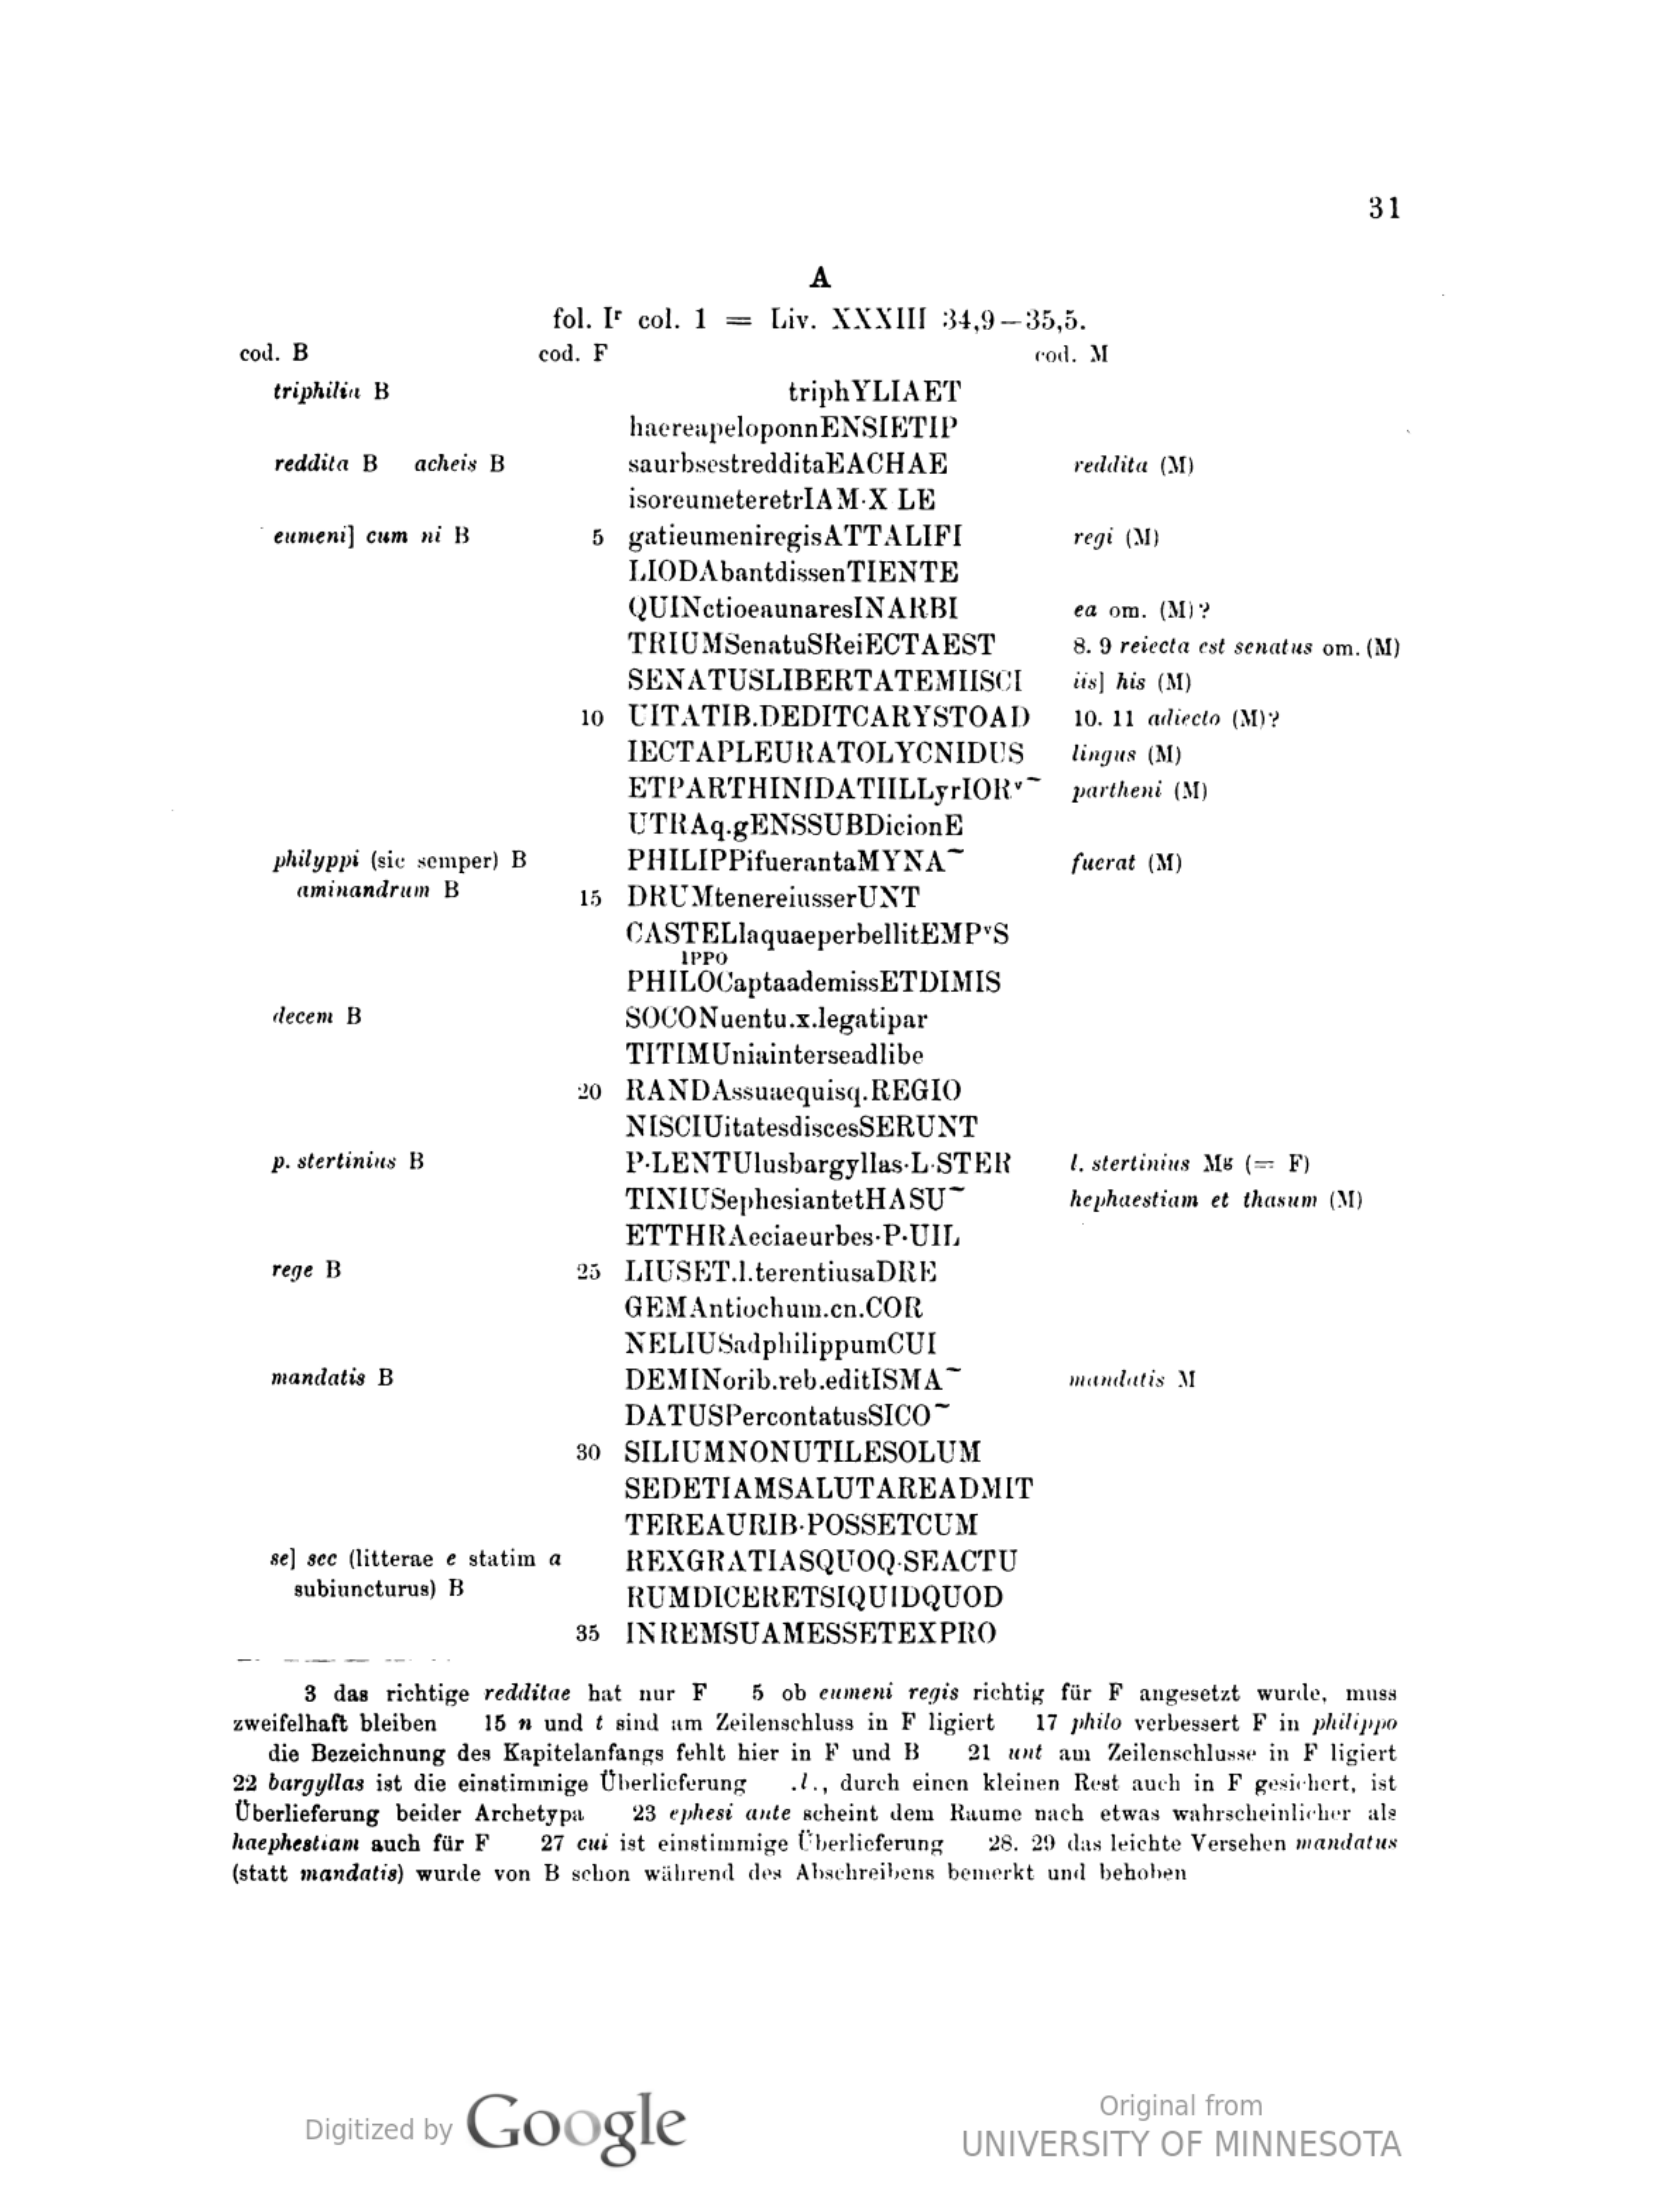 31
A
fol. Iʳ col. 1 = Liv. XXXIII 34,9–35,5.
cod. B cod. F cod. M
triphilia B triphYLIAET
haereapeloponnENSIETIP
reddita B acheis B saurbsestredditaEACHAE reddita (M)
isoreumeteretrIAM·X LE
eumeni] cum ni B 5 gatieumeniregisATTALIFI regi (M)
LIODAbantdissenTIENTE
QUINctioeaunaresINARBI ea om. (M)?
TRIUMSenatuSReiECTAEST 8. 9 reiecta est senatus om. (M)
SENATUSLIBERTATEMIISCI iis] his (M)
10 UITATIB.DEDITCARYSTOAD 10. 11 adiecto (M)?
IECTAPLEURATOLYCNIDUS lingus (M)
ETPARTHINIDATIILLyrIORᵛ~ partheni (M)
UTRAq.gENSSUBDicionE
philyppi (sic semper) B PHILIPPifuerantaMYNA~ fuerat (M)
aminandrum B 15 DRUMtenereiusserUNT
CASTELlaquaeperbellitEMPᵛS
IPPO
PHILOCaptaademissETDIMIS
decem B SOCONuentu.x.legatipar
TITIMUniainterseadlibe
20 RANDAssuaequisq.REGIO
NISCIUitatesdiscesSERUNT
p. stertinius B P·LENTUlusbargyllas·L·STER l. stertinius Mᵍ (= F)
TINIUSephesiantetHASU~ hephaestiam et thasum (M)
ETTHRAeciaeurbes·P·UIL
rege B 25 LIUSET.l.terentiusaDRE
GEMAntiochum.cn.COR
NELIUSadphilippumCUI
mandatis B DEMINorib.reb.editISMA~ mandatis M
DATUSPercontatusSICO~
30 SILIUMNONUTILESOLUM
SEDETIAMSALUTAREADMIT
TEREAURIB·POSSETCUM
se] sec (litterae e statim a REXGRATIASQUOQ·SEACTU
subiuncturus) B RUMDICERETSIQUIDQUOD
35 INREMSUAMESSETEXPRO
3 das richtige redditae hat nur F 5 ob eumeni regis richtig für F angesetzt wurde, muss
zweifelhaft bleiben 15 n und t sind am Zeilenschluss in F ligiert 17 philo verbessert F in philippo
die Bezeichnung des Kapitelanfangs fehlt hier in F und B 21 unt am Zeilenschlusse in F ligiert
22 bargyllas ist die einstimmige Überlieferung .l., durch einen kleinen Rest auch in F gesichert, ist
Überlieferung beider Archetypa 23 ephesi ante scheint dem Raume nach etwas wahrscheinlicher als
haephestiam auch für F 27 cui ist einstimmige Überlieferung 28. 29 das leichte Versehen mandatus
(statt mandatis) wurde von B schon während des Abschreibens bemerkt und behoben
Digitized by Google
Original from
UNIVERSITY OF MINNESOTA